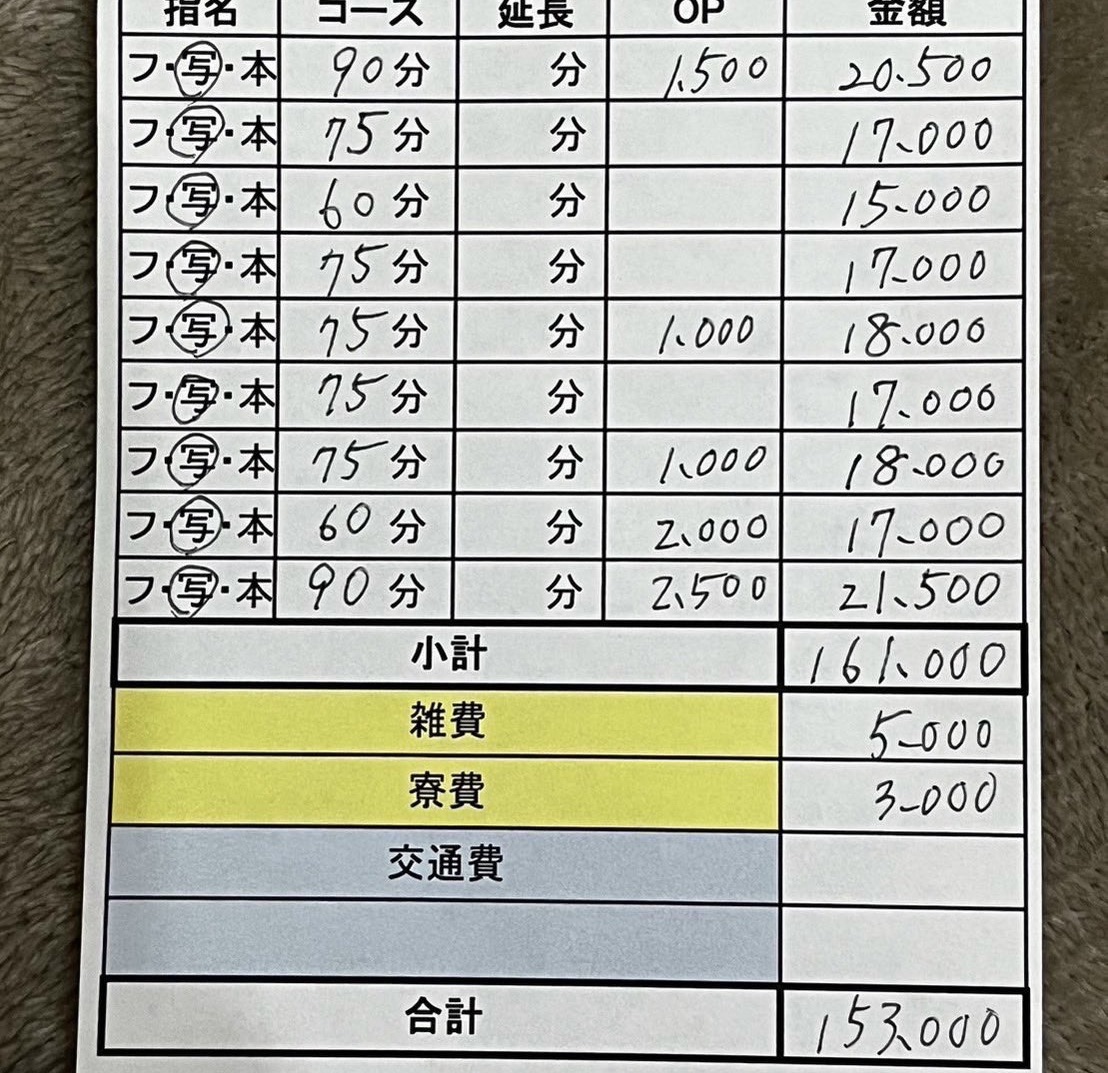 指名 コース 延長 OP 金額
フ・写・本 90分 分 1.500 20.500
フ・写・本 75分 分 17.000
フ・写・本 60分 分 15.000
フ・写・本 75分 分 17.000
フ・写・本 75分 分 1.000 18.000
フ・写・本 75分 分 17.000
フ・写・本 75分 分 1.000 18.000
フ・写・本 60分 分 2.000 17.000
フ・写・本 90分 分 2.500 21.500
小計 161.000
雑費 5.000
寮費 3.000
交通費
合計 153.000